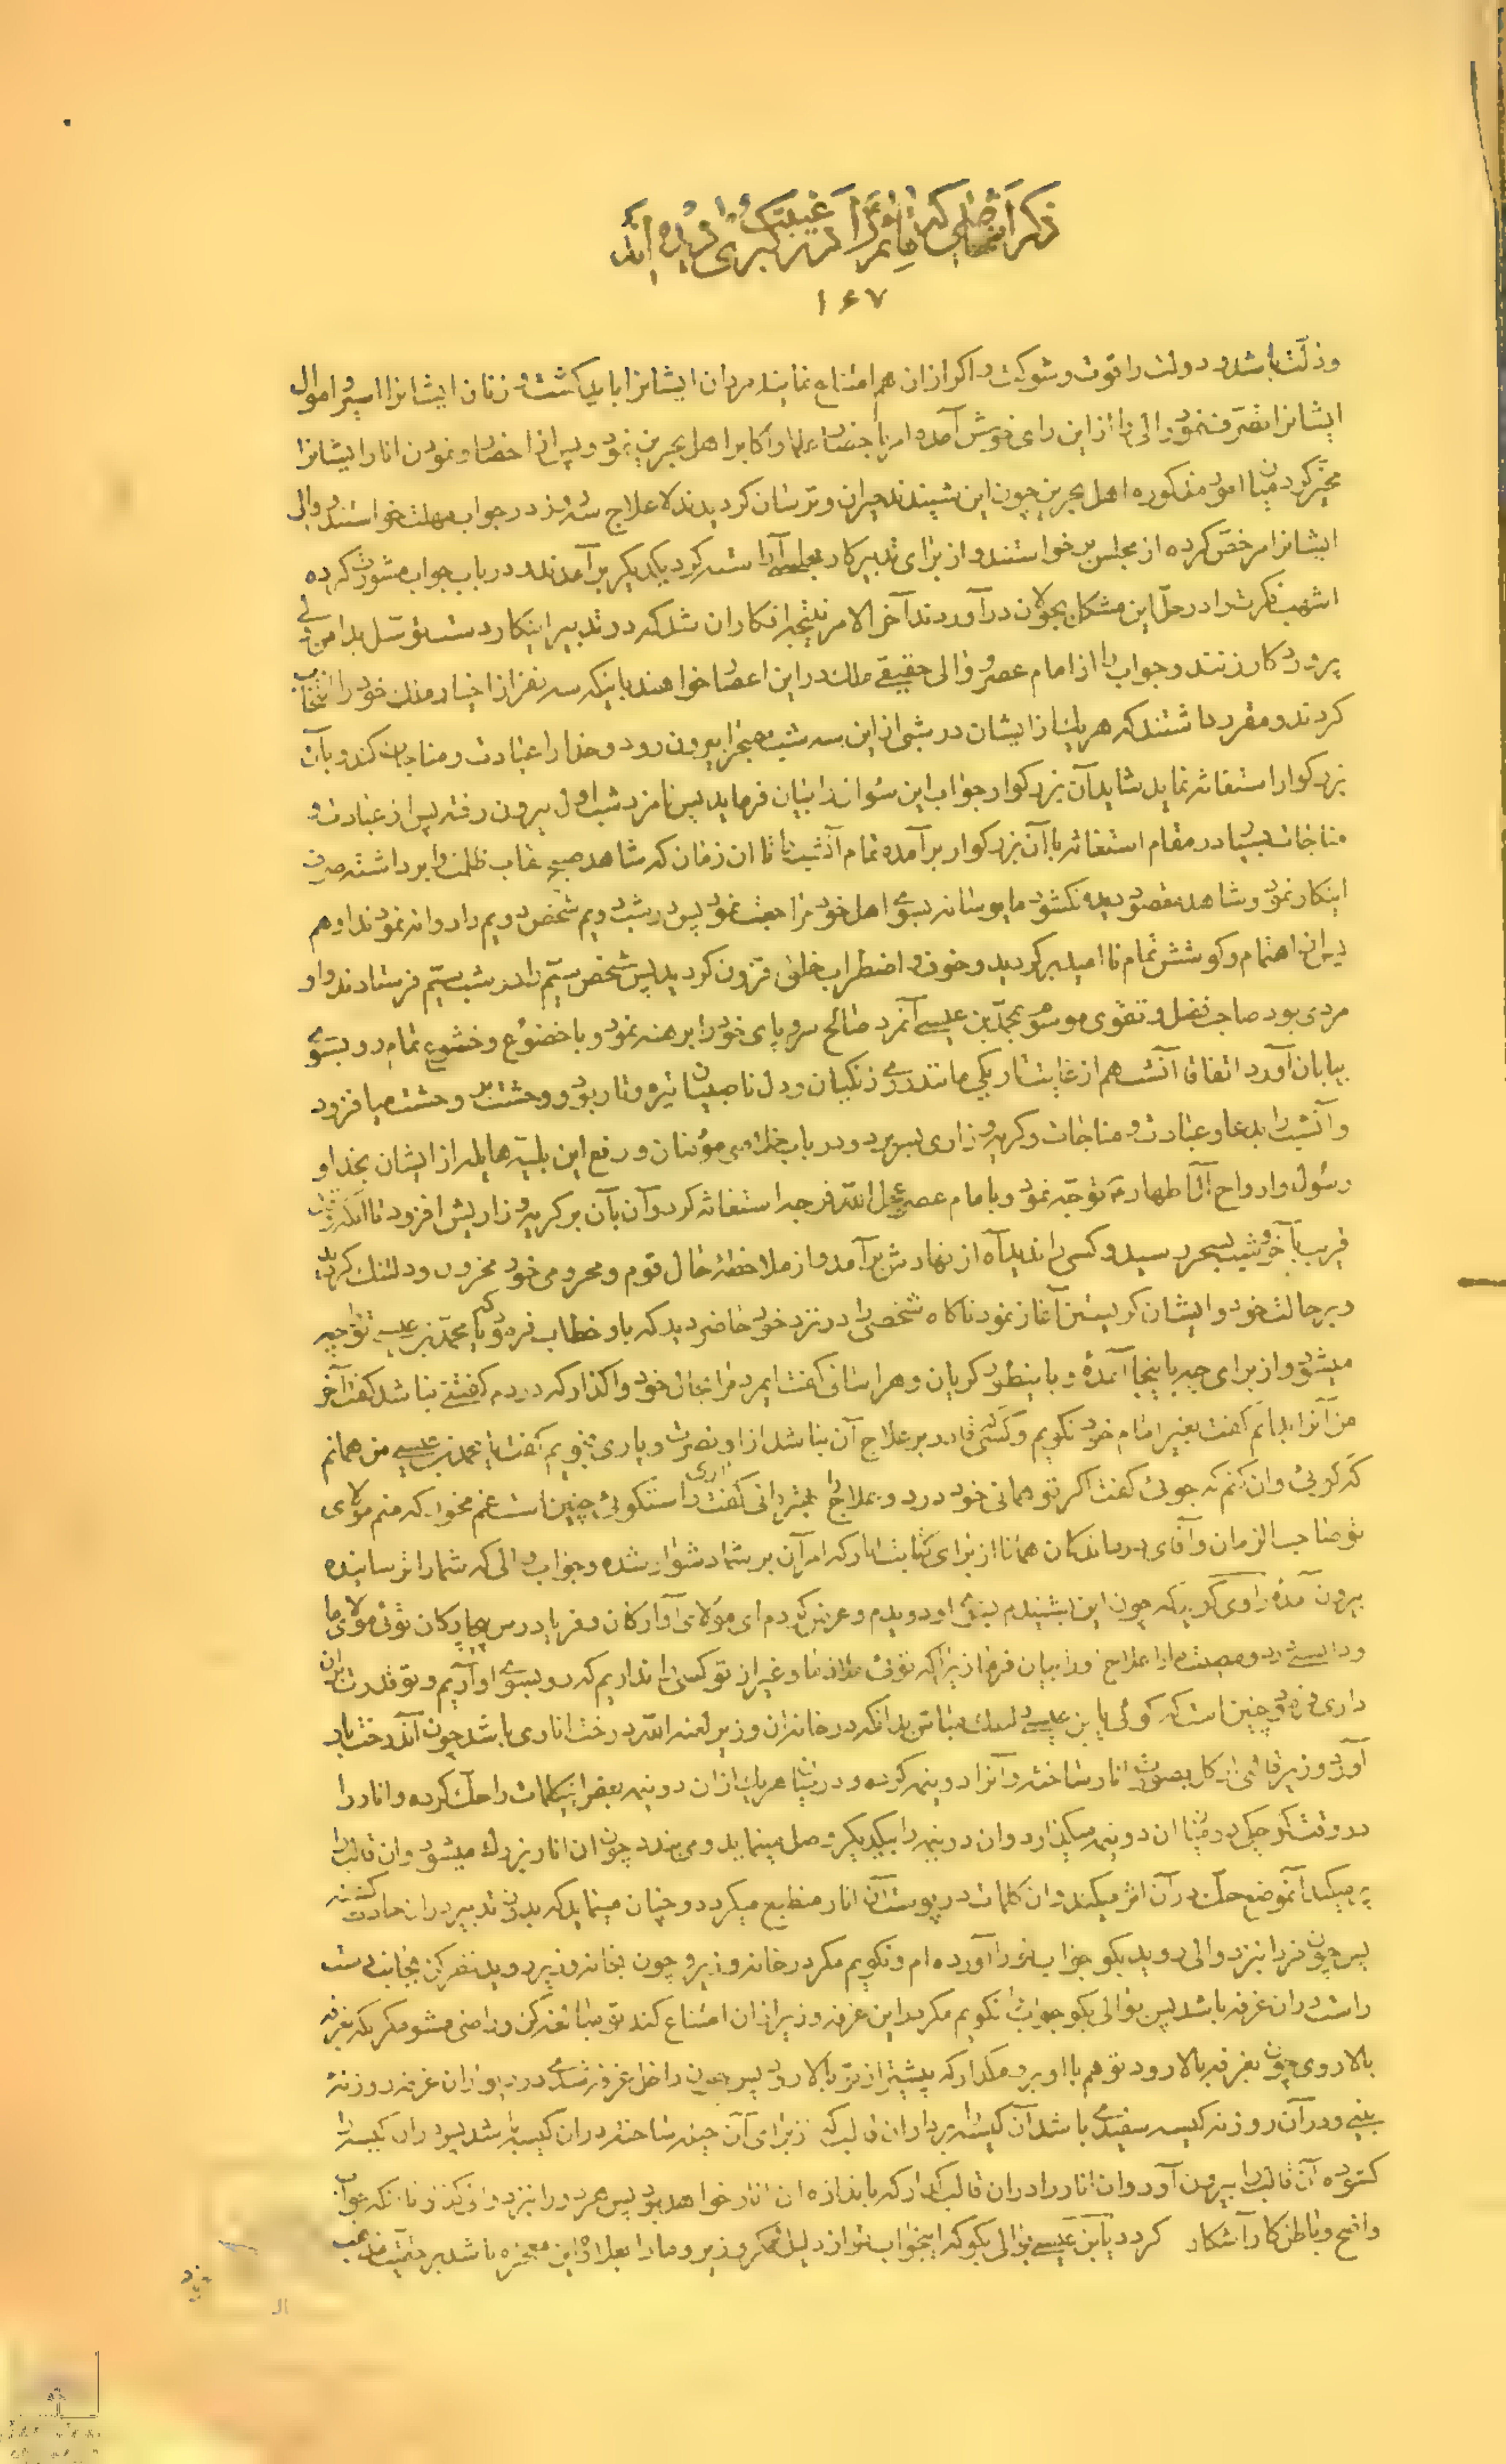 ذکر اشخاصی که امام را در غیبت کبری دیده اند
۱۶۷
و ذلّت باشد و دولت را قوت و شوکت و اکر از ان هم امتناع نمایند مردان ایشانرا باید کشت و زنان ایشانرا اسیر و اموال
ایشانرا تصرّف نمود والی را از این رای خوش آمده امر باحضار علما و اکابر اهل بحرین نمود و پس از احضار و نمودن انار ایشانرا
مخیّر کرد میان امور مذکوره اهل بحرین چون این شنیدند حیران و ترسان کردیدند لاعلاج شدند در جواب مهلت خواستند والی
ایشانرا مرخّص کرده از مجلس بر خواستند و از برای تدبیر کار مجلسی آراسته کرد یکدیکر برآمدند و در باب جواب مشورت کرده
اشهب فکرت را در حلّ این مشکل بجولان درآوردند آخر الامر نتیجه افکاران شد که در تدبیر اینکار دست توسّل بدامن ولی
پروردکار زنند و جواب را از امام عصر و والی حقیقی ملک در این اعصار خواهند باینکه سه نفر از اخیار ملک خود را انتخاب
کردند و مقرر داشتند که هر یک از ایشان در شبی از این سه شب بصحرا بیرون رود و خدا را عبادت و مناجات کند و بآن
بزرکوار استغاثه نماید شاید آن بزرکوار جواب این سؤال را بیان فرماید پس نامزد شب اول بیرون رفته پس از عبادت و
مناجات بسیار در مقام استغاثه بآن بزرکوار برآمده تمام آنشب را تا ان زمان که شاهد صبح نقاب ظلمت را برداشته صرف
اینکار نمود و شاهد مقصود دیده نکشود مایوسانه بسوی اهل خود مراجعت نمود پس در شب دویم شخص دویم را روانه نمودند او هم
پس از اهتمام و کوشش تمام ناامید برکردید و خوف و اضطراب خلق فزون کردید پس شخص سیّم را در شب سیّم فرستادند و او
مردی بود صاحب فضل و تقوی موسوم بمحمّد بن عیسی آنمرد صالح سر و پای خود را برهنه نمود و با خضوع و خشوع تمام رو بسوی
بیابان آورد اتفاقا آنشب هم از غایت تاریکی مانند روی زنکیان و دل ناصبیان تیره و تار بود و وحشت بر وحشت میافزود
و آنشب را بدعا و عبادت و مناجات و کریه و زاری بسر برد و در باب خلاصی مؤمنان و رفع این بلیّه هایله از ایشان بخدا و
رسول و ارواح ائمّه اطهار توجّه نمود و با امام عصر عجل الله فرجه استغاثه کرد و آن بآن بر کریه و زاریش افزود تا آنکه شب
قریب بآخر و شب بسحر رسید و کسی را ندید آه از نهادش برآمد و از ملاحظه حال قوم و محرومی خود محزون و دلتنک کردید
و بر حالت خود و ایشان کریستن آغاز نمود ناکاه شخصی را در نزد خود حاضر دید که باو خطاب فرمود که یا محمّد بن عیسی تو را چه
میشود و از برای چه باینجا آمدهٔ و باینطور کریان و هراسانی کفت ایمرد مرا بحال خود واکذار که دردم کفتنی نباشد کفت آخر
من آنرا بدانم کفت بغیر امام خود نکویم و کسی که قادر بر علاج آن نباشد از او نصرت و یاری نجویم کفت یا محمد بن عیسی من همانم
که کوئی و ان کنم که جوئی کفت اکر تو همانی خود درد و علاج را بهتر دانی کفت آری راستکوئی چنین است غم مخور که منم مولای
تو صاحب الزمان و آقای درماندکان همانا از برای کتابت انار که امر آن بر شما دشوار شده و جواب والی که شما را ترسانیده
بیرون آمدهٔ راوی کوید که چون این بشنیدم بسوی او دویدم و عرض کردم ای مولای آوارکان و فریاد رس بیچارکان توئی مولای ما
و دانستی درد و مصیبت ما را علاج ما را بیان فرما زیرا که توئی ملاذ ما و غیر از تو کسی را نداریم که رو بسوی او آریم و تو قدرت بر آن
داری فرمود چنین است که کوئی یا بن عیسی دلتنک مباش بدانکه در خانه ان وزیر لعنه الله درخت اناری باشد چون آندرخت بار
آورد وزیر قالبی از کل بصورت انار ساخته و آنرا دو نیمه کرده و در میان هر یک از ان دو نیمه بعض اینکلمات را حک کرده و انار را
در وقت کوچکی در میان ان دو نیمه میکذارد و ان دو نیمه را بیکدیکر وصل مینماید و می بندد چون ان انار بزرک میشود و ان قالب را
پر میکند آنموضع حک در آن اثر میکند و ان کلمات در پوست آن انار منطبع میکردد و چنان مینماید که بدون تدبیر در ان حادث کشته
پس چون فردا نزد والی روید بکو جواب تو را آورده ام و نکویم مکر در خانه وزیر و چون بخانه وزیر روید نظر کن بجانب دست
راست در ان غرفه باشد پس بوالی بکو جوابت نکویم مکر در این غرفه وزیر از ان امتناع کند تو مبالغه کن و راضی مشو مکر آنکه بغرفه
بالا روی چون بغرفه بالا رود تو هم با او برو مکذار که پیشتر از تو بالا رود پس چون داخل غرفه شدی در دیوار ان غرفه روزنهٔ
بینی و در آن روزنه کیسه سفیدی باشد آن کیسه را بردار ان قالب که از برای آن حیله ساخته در ان کیسه باشد پس در ان کیسه را
کشوده آن قالب را بیرون آور و ان انار را در ان قالب کذار که باندازه ان انار خواهد بود پس هر دو را نزد والی کذار تا آنکه جواب
واضح و باطن کار آشکار کردد یا بن عیسی بوالی بکو که اینجواب تو از دلیل مکر وزیر و ما را بعلاوه این معجزه باشد بر حقیّت مذهب